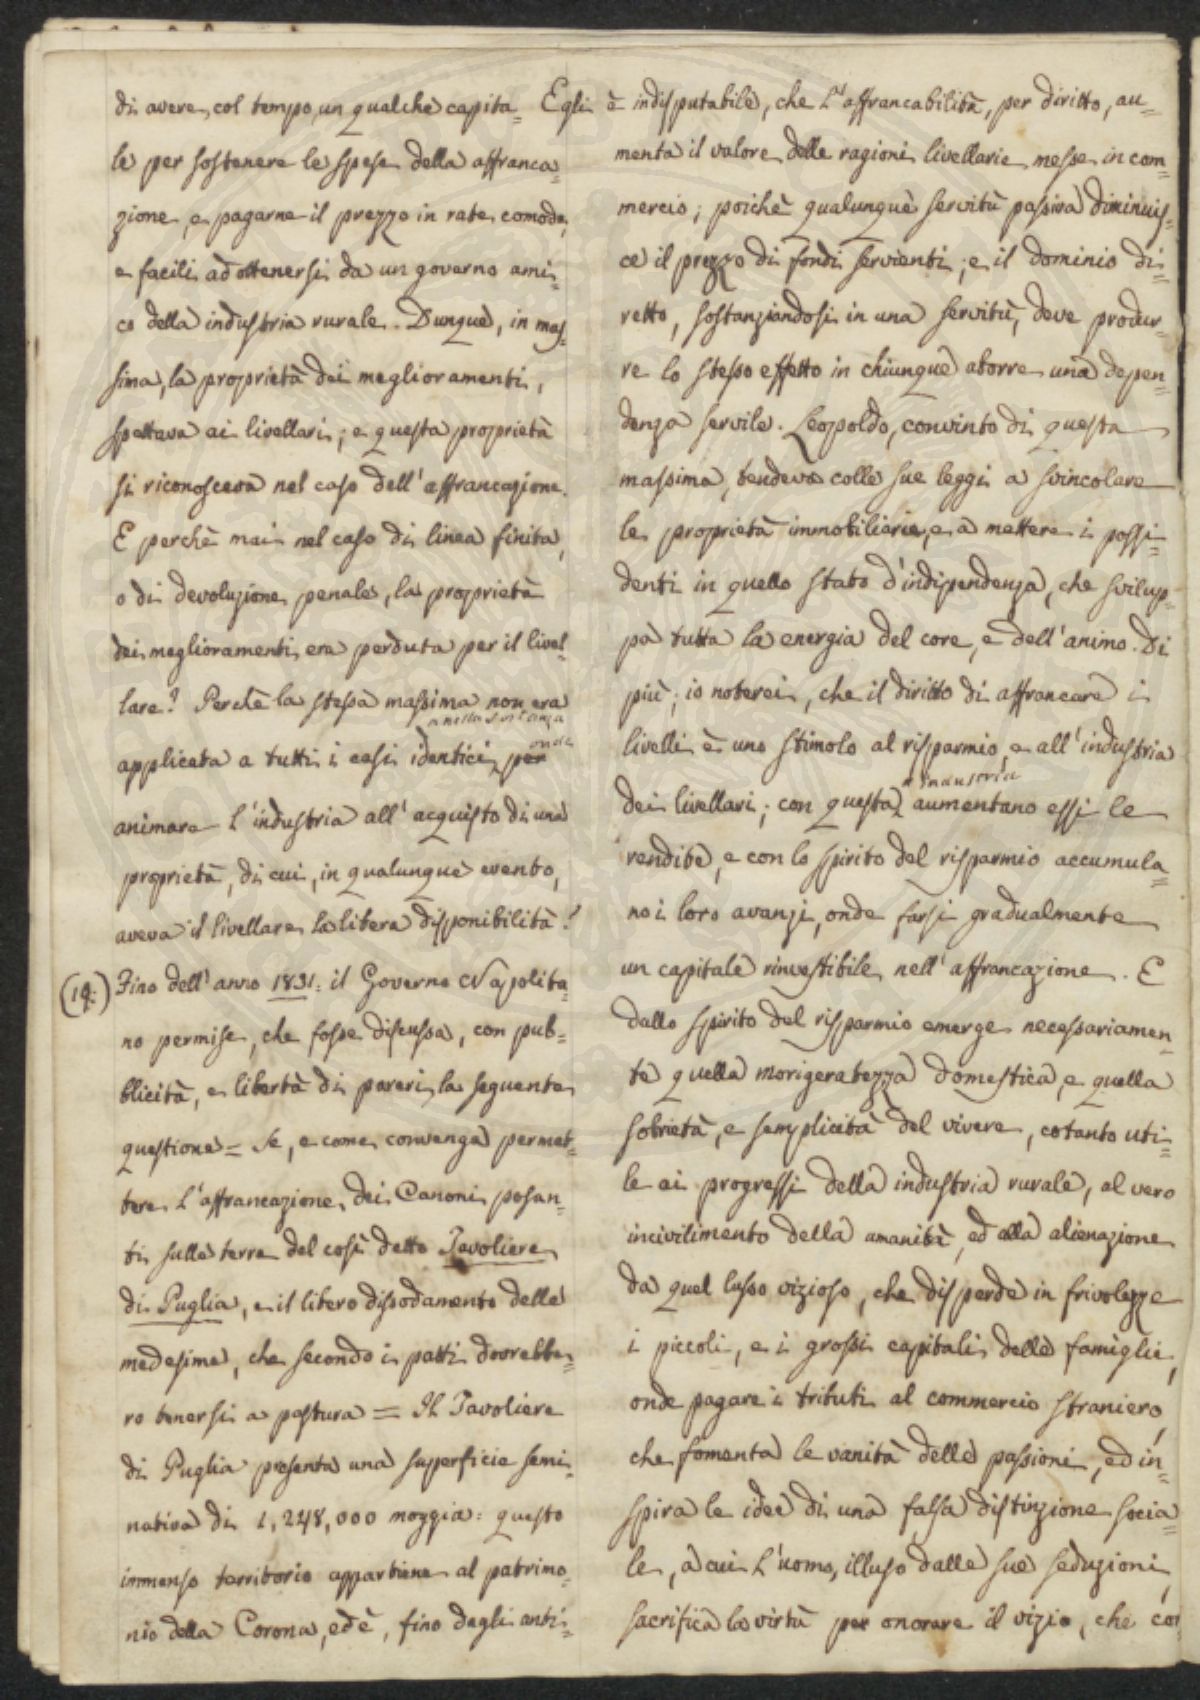 di avere, col tempo, un qualche capita=
le per sostenere le spese della affranca=
zione, e pagarne il prezzo in rate comode,
e facili ad ottenersi da un governo ami=
co della industria rurale. Dunque, in mas=
sima, la proprietà dei meglioramenti,
spettava ai livellari; e questa proprietà
si riconosceva nel caso dell'affrancazione.
E perchè mai nel caso di linea finita,
o di devoluzione penale, la proprietà
dei meglioramenti era perduta per il livel=
lare? Perchè la stessa massima non era
a nella sostanza
applicata a tutti i casi identici, per onde
animare l'industria all'acquisto di una
proprietà, di cui, in qualunque evento,
aveva il livellare la libera disponibilità?
(19:) Fino dell'anno 1831: il Governo Napolita=
no permise, che fosse discussa, con pub=
blicità, e libertà di pareri, la seguente
questione = Se, e come, convenga permet=
tere l'affrancazione dei Canoni posan=
ti sulle terre del così detto Tavoliere
di Puglia, e il libero dissodamento delle
medesime, che secondo i patti dovrebbe=
ro tenersi a pastura = Il Tavoliere
di Puglia presenta una superficie semi=
nativa di 1,248,000 moggia: questo
immenso territorio appartiene al patrimo=
nio della Corona, ed è, fino degli anti=
Egli è indisputabile, che l'affrancabilità, per diritto, au=
menta il valore delle ragioni livellarie messe in com=
mercio; poichè qualunque servitù passiva diminuis=
ce il prezzo di fondi servienti; e il dominio di=
retto, sostanziandosi in una servitù, deve produr=
re lo stesso effetto in chiunque aborre una depen=
denza servile. Leopoldo, convinto di questa
massima, tendeva colle sue leggi a svincolare
le proprietà immobiliarie, e a mettere i possi=
denti in quello stato d'indipendenza, che svilup=
pa tutta la energia del core, e dell'animo. Di
più; io noterei, che il diritto di affrancare i
livelli è uno stimolo al risparmio, e all'industria
industria
dei livellari; con questa aumentano essi le
rendite, e con lo spirito del risparmio accumula=
no i loro avanzi, onde farsi gradualmente
un capitale rinvestibile nell'affrancazione. E
dallo spirito del risparmio emerge necessariamen=
te quella morigeratezza domestica, e quella
sobrietà, e semplicità del vivere, cotanto uti=
le ai progressi della industria rurale, al vero
incivilimento della amanità, ed alla alienazione
da quel lusso vizioso, che disperde in frivolezze
i piccoli, e i grossi capitali delle famiglie,
onde pagare i tributi al commercio straniero,
che fomenta le vanità delle passioni, ed in=
spira le idee di una falsa distinzione socia=
le, a cui l'uomo, illuso dalle sue seduzioni,
sacrifica la virtù per onorare il vizio, che co